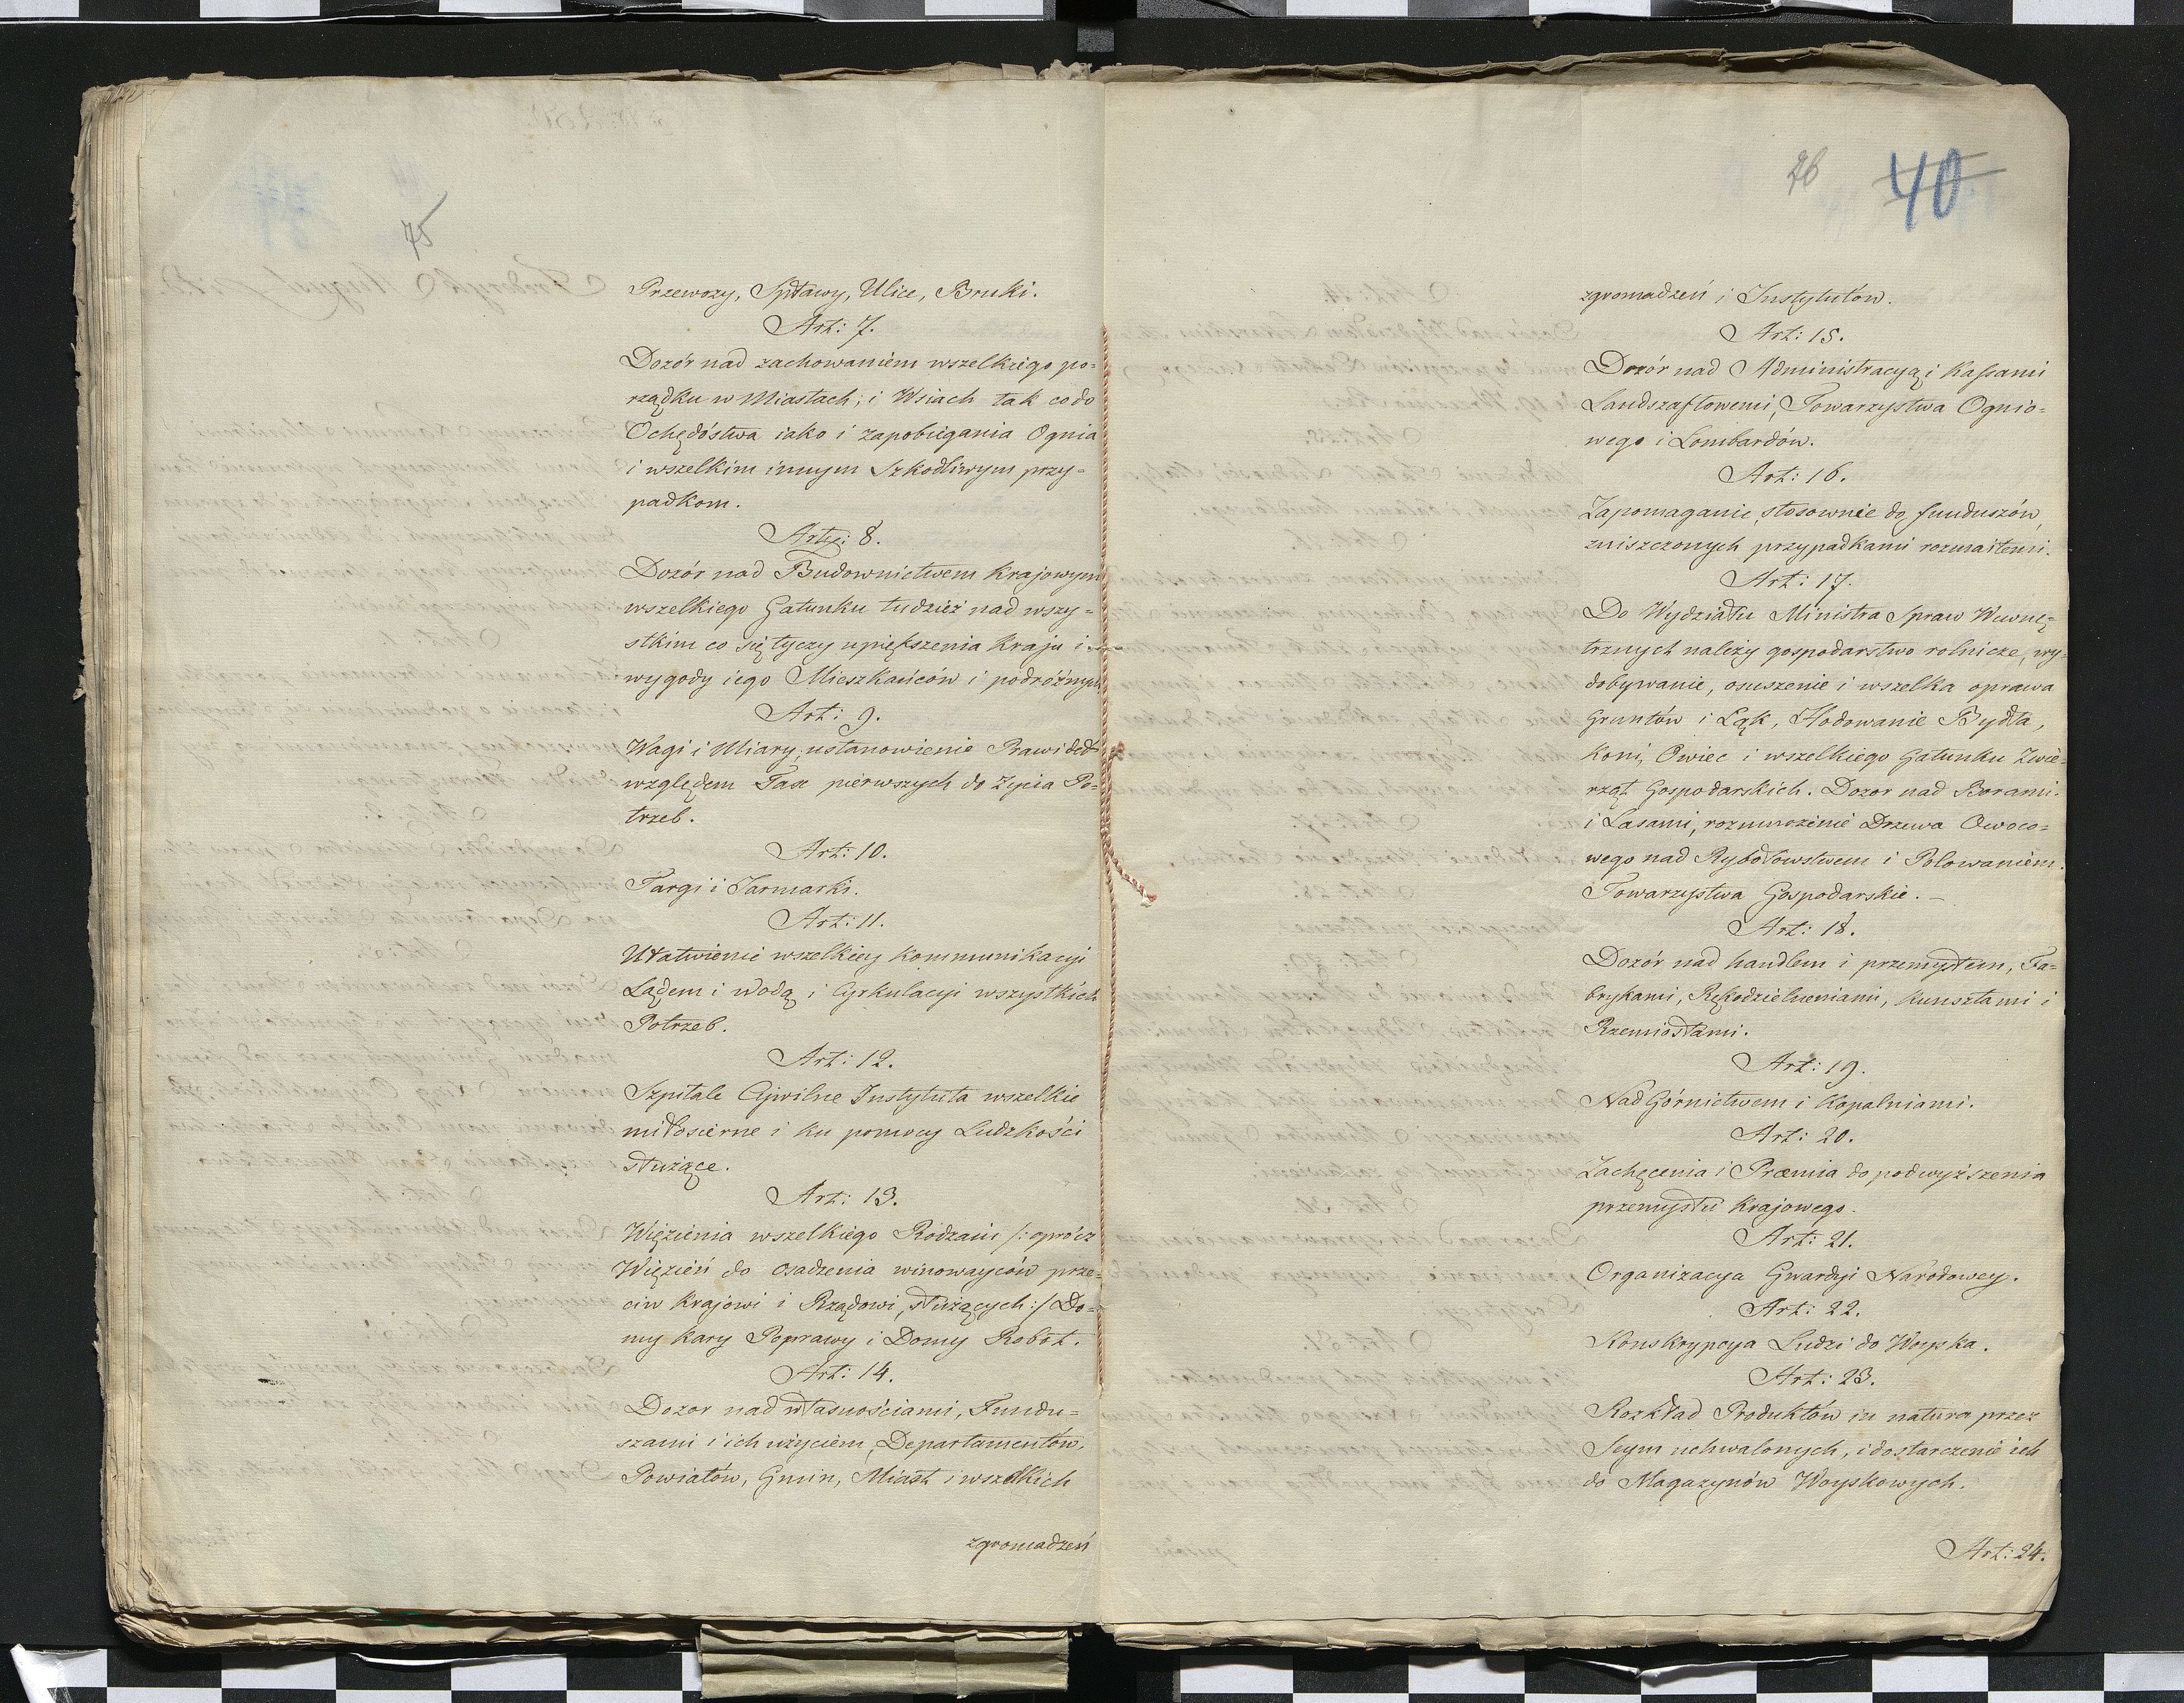 75
Przewozy, Spławy, Ulice, Bruki.
Art: 7.
Dozór nad zachowaniem wszelkiego po-
rządku w Miastach, i Wsiach tak co do
Ochędóstwa iako i zapobiegania Ognia
i wszelkim innym Szkodliwym przy-
padkom.
Arty: 8.
Dozór nad Budownictwem Krajowym
wszelkiego Gatunku tudzież nad wszy-
stkim co się tyczy upiększenia Kraju i
wygody iego Mieszkańców i podróżnych
Art: 9.
Wagi i Miary, ustanowienie Prawideł
względem Tax pierwszych do życia Po-
trzeb.
Art: 10.
Targi i Jarmarki.
Art: 11.
Ułatwienie wszelkiey Kommunikacyi
Lądem i wodą i Cyrkulacyi wszystkich
Potrzeb.
Art: 12.
Szpitale Cywilne Instytuta wszelkie
miłosierne i ku pomocy Ludzkości
służące.
Art: 13.
Więzienia wszelkiego Rodzaiu /: oprócz
Więzień do osadzenia winowayców prze-
ciw Krajowi i Rządowi, służących :/ Do-
my Kary Poprawy i Domy Robót.
Art: 14.
Dozor nad własnościami, Fundu-
szami i ich użyciem, Departamentów,
Powiatów, Gmin, Miast i wszelkich
zgromadzeń
76 40
zgromadzeń i Instytutów.
Art: 15.
Dozór nad Administracyą i Kassami
Landszaftowemi, Towarzystwa Ognio-
wego i Lombardów.
Art: 16.
Zapomaganie, stosownie do funduszów,
zniszczonych przypadkami rozmaitemi.
Art: 17.
Do Wydziału Ministra Spraw Wewnę-
trznych należy gospodarstwo rolnicze, wy-
dobywanie, osuszenie i wszelka oprawa
Gruntów i Łąk, Hodowanie Bydła,
Koni, Owiec i wszelkiego Gatunku Zwie-
rząt Gospodarskich. Dozor nad Borami
i Lasami, rozmnożenie Drzewa Owoco-
wego nad Rybołowstwem i Polowaniem.
Towarzystwa Gospodarskie. –
Art: 18.
Dozór nad handlem i przemysłem, Fa-
brykami, Rękodzielniami, Kunsztami i
Rzemiosłami.
Art: 19.
Nad Górnictwem i Kopalniami.
Art: 20.
Zachęcenia i Præmia do podwyższenia
przemysłu Krajowego.
Art: 21.
Organizacya Gwardyi Narodowey.
Art: 22.
Konskrypcya Ludzi do Woyska.
Art: 23.
Rozkład Produktów in natura przez
Seym uchwalonych, i dostarczenie ich
do Magazynów Woyskowych.
Art: 24.